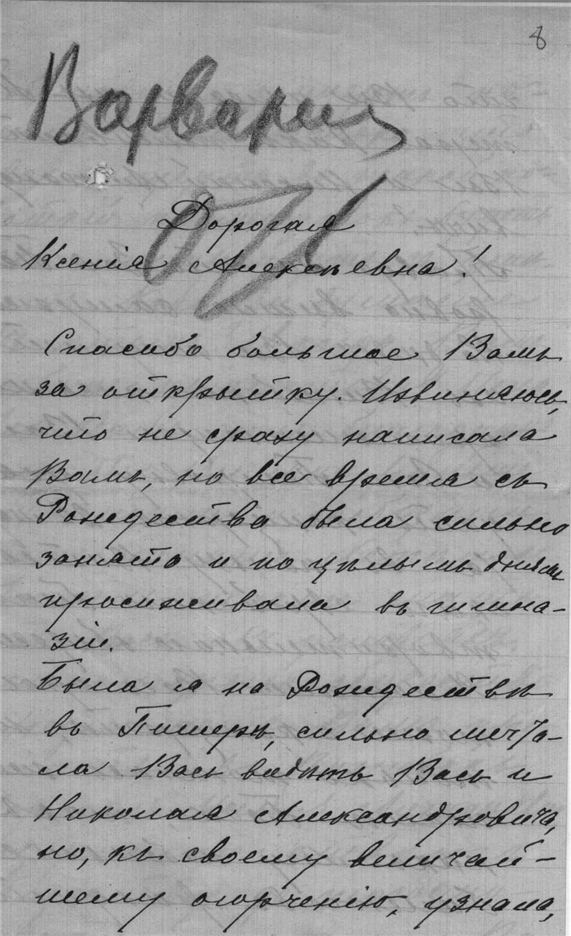 8
Дорогая
Ксенія Алексѣевна!
Спасибо большое Вамъ
за открытку. Извиняюсь,
что не сразу написала
Вамъ, но все время съ
Рождества была сильно
занята и по цѣлымъ днямъ
просиживала въ гимна-
зіи.
Была я на Рождествѣ
въ Питерѣ, сильно мечта-
ла Васъ видѣть Васъ и
Николая Александровича,
но, къ своему величай-
шему огорченію, узнала,